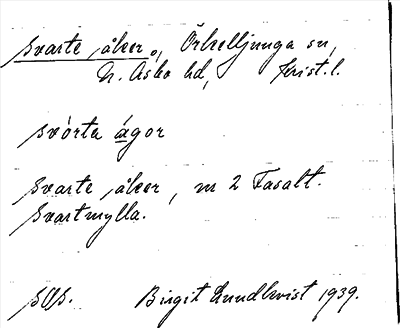 Svarte åker, Örkelljunga sn,
N. Åsbo hd, Krist. l.
svórta ágor
Svarte åker, m 2 Fasalt.
Svartmylla.
SOS. Birgit Lundkvist 1939.